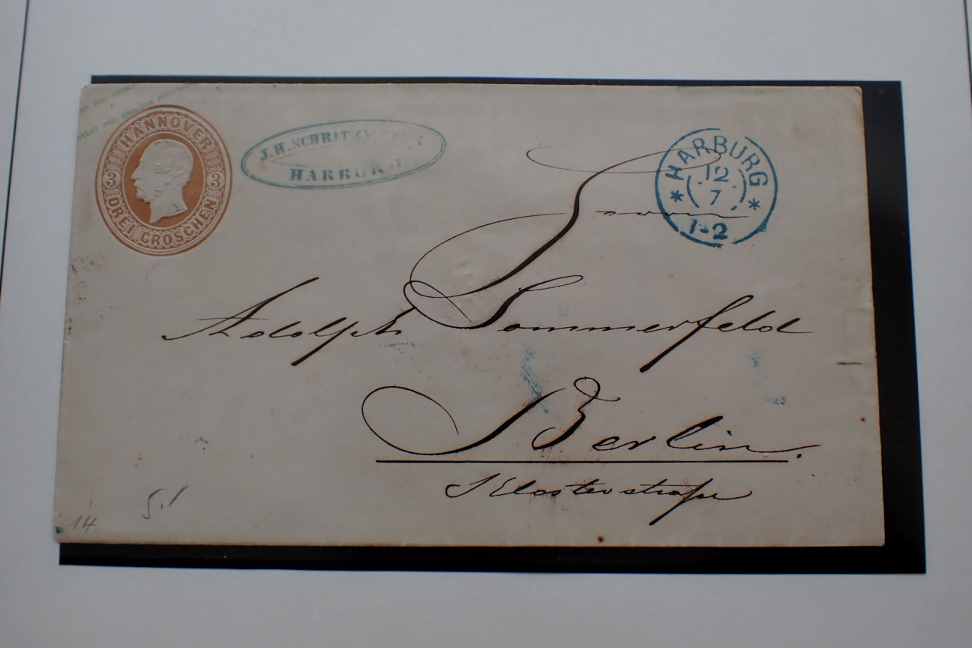 HANNOVER
3 3
DREI GROSCHEN
J.H. SCHRIT
HARBURG
HARBURG
12
7
1-2
Adolph Sommerfeld
Berlin.
Klosterstraße
14
5.1